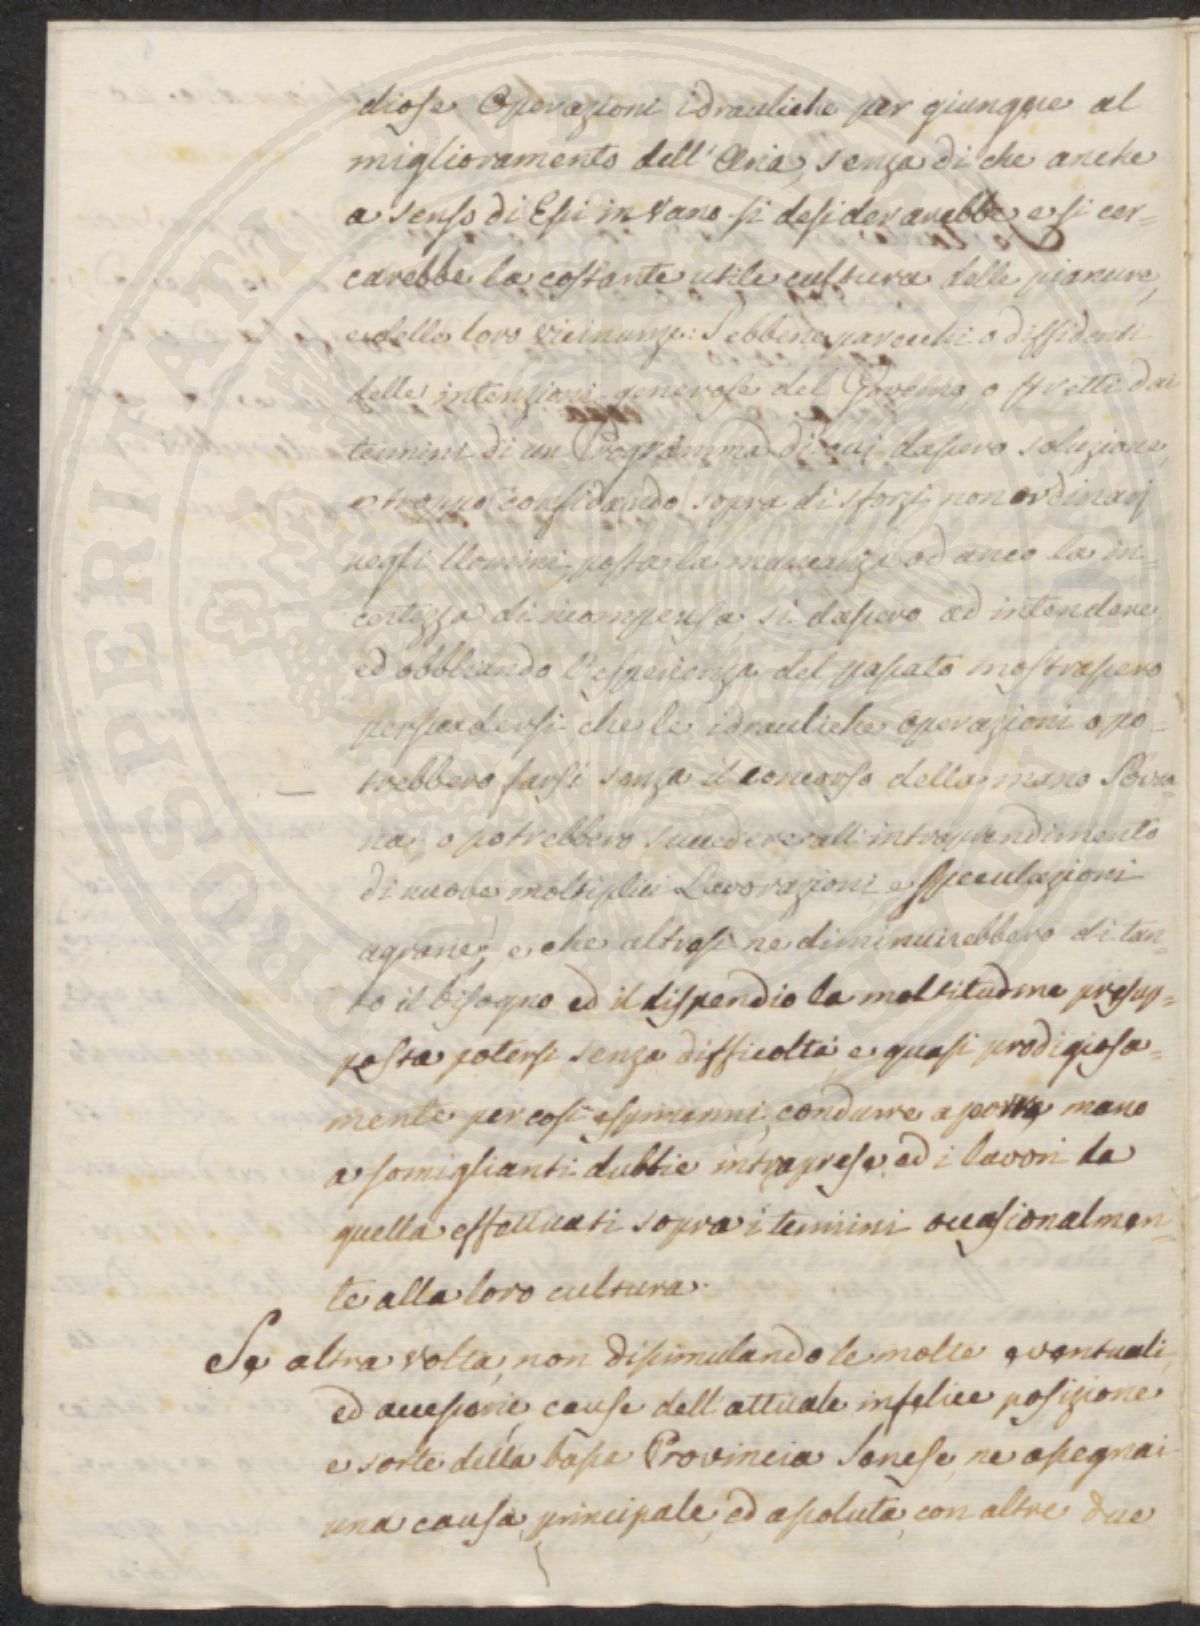 diose Operazioni idrauliche per giungere al
miglioramento dell'Aria, senza di che anche
a senso di Essi in vano si desiderarebbe, e si cer=
carebbe la costante utile cultura delle pianure,
e delle loro vicinanze: Sebbene parecchi o diffidenti
delle intenzioni generose del Governo, o stretti dai
termini di un Programma di cui dassero soluzione,
o troppo confidando sopra di sforzi non ordinarj
negli Uomini, posta la mancanza od anco la in=
certezza di ricompensa, si dassero ad intendere,
ed obbliando l'esperienza del passato mostrassero
persuadersi che le idrauliche Operazioni o po=
trebbero farsi senza il concorso della mano Sovra
na, o potrebbero succedere all'intraprendimento
di nuove moltiplici Lavorazioni, e speculazioni
agrarie, e che altresì ne diminuirebbero di tan=
to il bisogno ed il dispendio la moltitudine presup=
posta potersi senza difficoltà, e quasi prodigiosa=
mente per così esprimermi, condurre a porre mano
a somiglianti dubbie intraprese, ed i lavori da
quella effettuati sopra i terreni occasionalmen=
te alla loro cultura.
Se altra volta, non dissimulando le molte eventuali,
ed accessorie cause dell'attuale infelice posizione
e sorte della bassa Provincia Senese, ne assegnai
una causa, principale, ed assoluta, con altre due
PROSPERITATI PUBLICAE